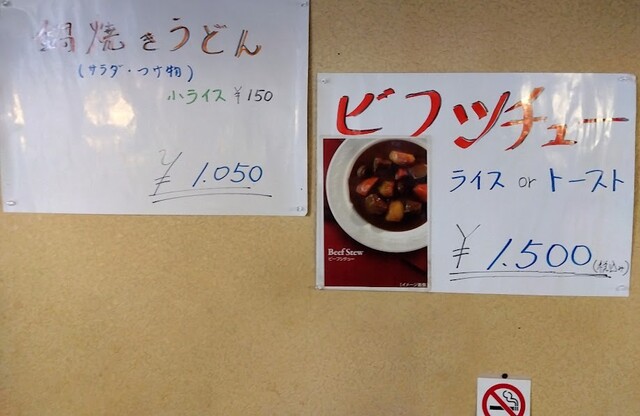 鍋焼きうどん
(サラダ・つけ物)
小ライス ¥150
¥1.050
ビフッチュー
ライス or トースト
¥1.500(税込み)
Beef Stew
ビーフシチュー
(イメージ画像